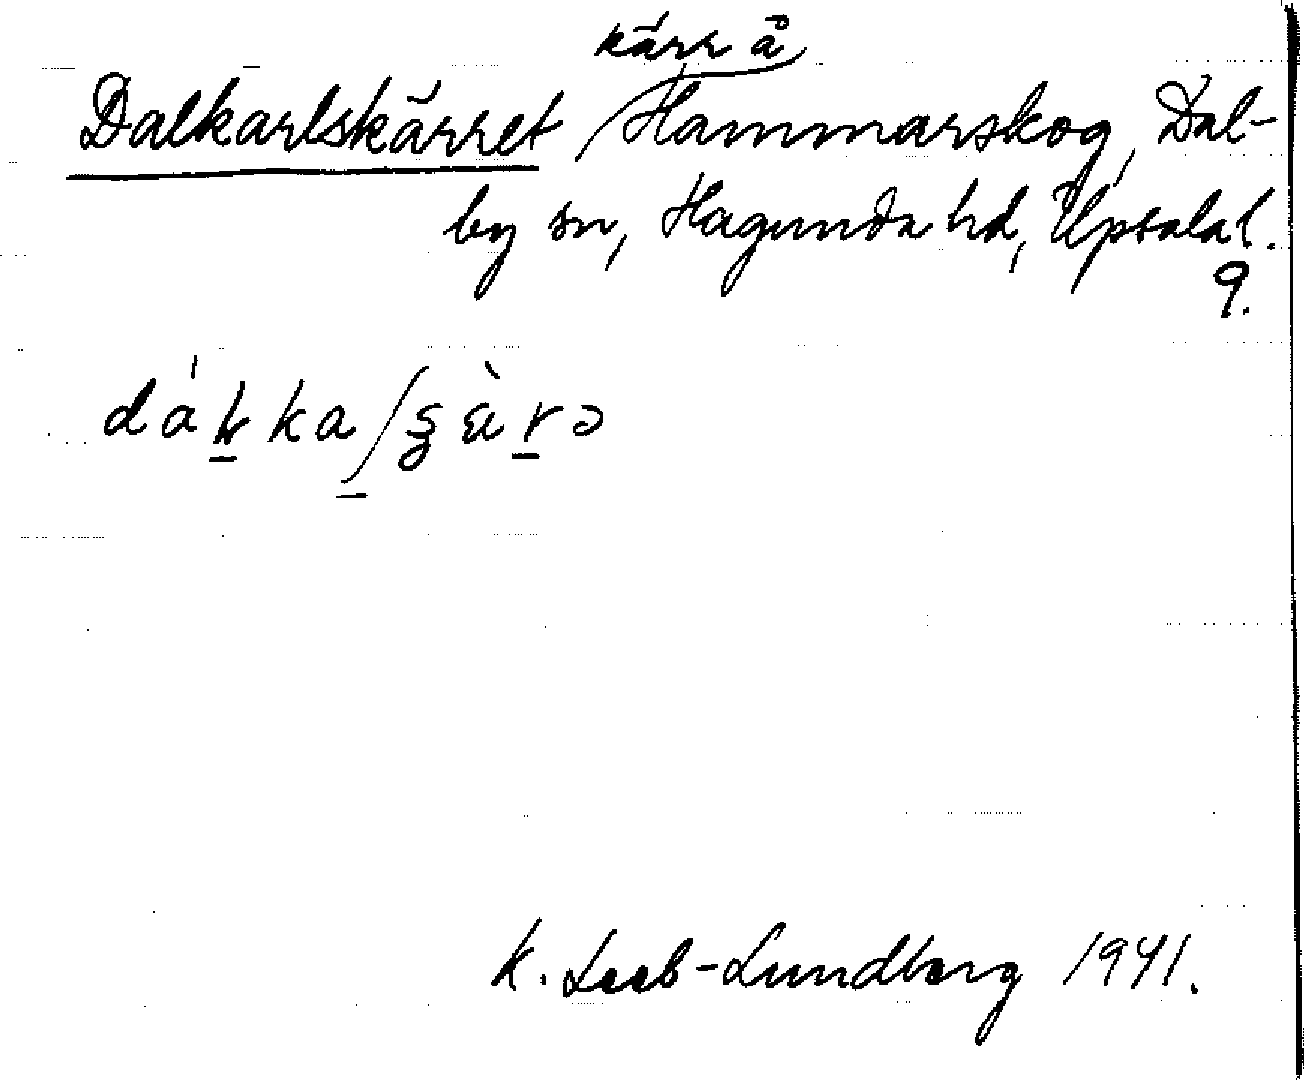 kärr å
Dalkarlskärret / Hammarskog, Dal-
by sn, Hagunda hd, Upsala l.
9.
K. Leeb-Lundberg 1941.